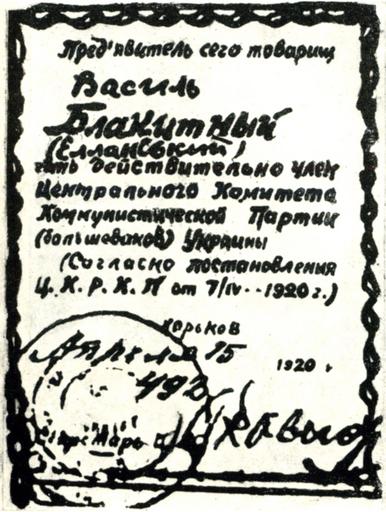 Пред'явитель сего товарищ
Василь
Блакитный
(Елланський)
есть действительно член
Центрального Комитета
Коммунистической Партии
(большевиков) Украины
(Согласно постановления
Ц.К.Р.К.П от 7/IV--1920 г.)
Харьков
Апреля 15
1920 г
492